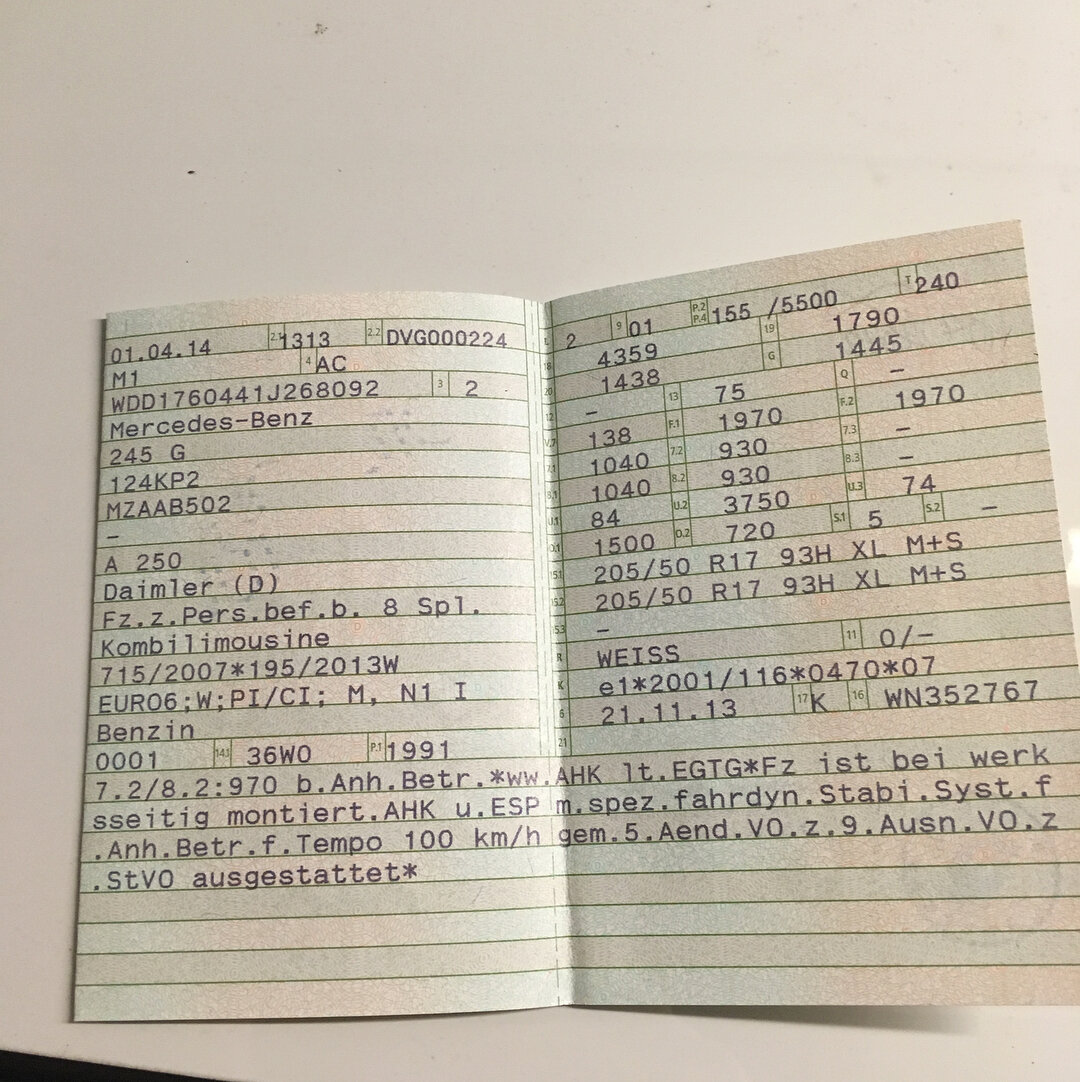 01.04.14 2.1 1313 2.2 DVG000224
M1 4 AC
WDD1760441J268092 3 2
Mercedes-Benz
245 G
124KP2
MZAAB502
–
A 250
Daimler (D)
Fz.z.Pers.bef.b. 8 Spl.
Kombilimousine
715/2007*195/2013W
EURO6;W;PI/CI; M, N1 I
Benzin
0001 14.1 36W0 P.1 1991
L 2 9 01 P.2 P.4 155 /5500 T 240
18 4359 19 1790
20 1438 G 1445
12 – 13 75 Q –
V.7 138 F.1 1970 F.2 1970
7.1 1040 7.2 930 7.3 –
8.1 1040 8.2 930 8.3 –
U.1 84 U.2 3750 U.3 74
O.1 1500 O.2 720 S.1 5 S.2 –
15.1 205/50 R17 93H XL M+S
15.2 205/50 R17 93H XL M+S
15.3 –
R WEISS 11 0/–
K e1*2001/116*0470*07
6 21.11.13 17 K 16 WN352767
21
7.2/8.2:970 b.Anh.Betr.*ww.AHK lt.EGTG*Fz ist bei werk
sseitig montiert.AHK u.ESP m.spez.fahrdyn.Stabi.Syst.f
.Anh.Betr.f.Tempo 100 km/h gem.5.Aend.VO.z.9.Ausn.VO.z
.StVO ausgestattet*